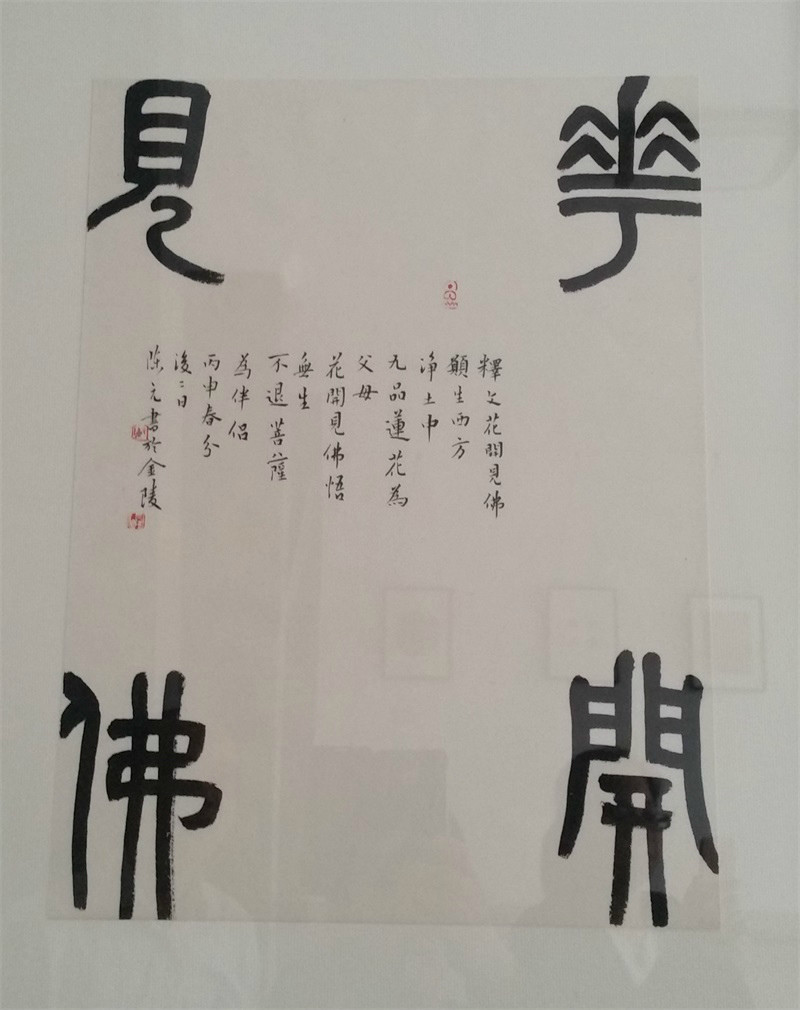 華開
見佛
釋文花開見佛
願生西方
淨土中
九品蓮花為
父母
花開見佛悟
無生
不退菩薩
為伴侶
丙申春分
後二日
陳元書於金陵